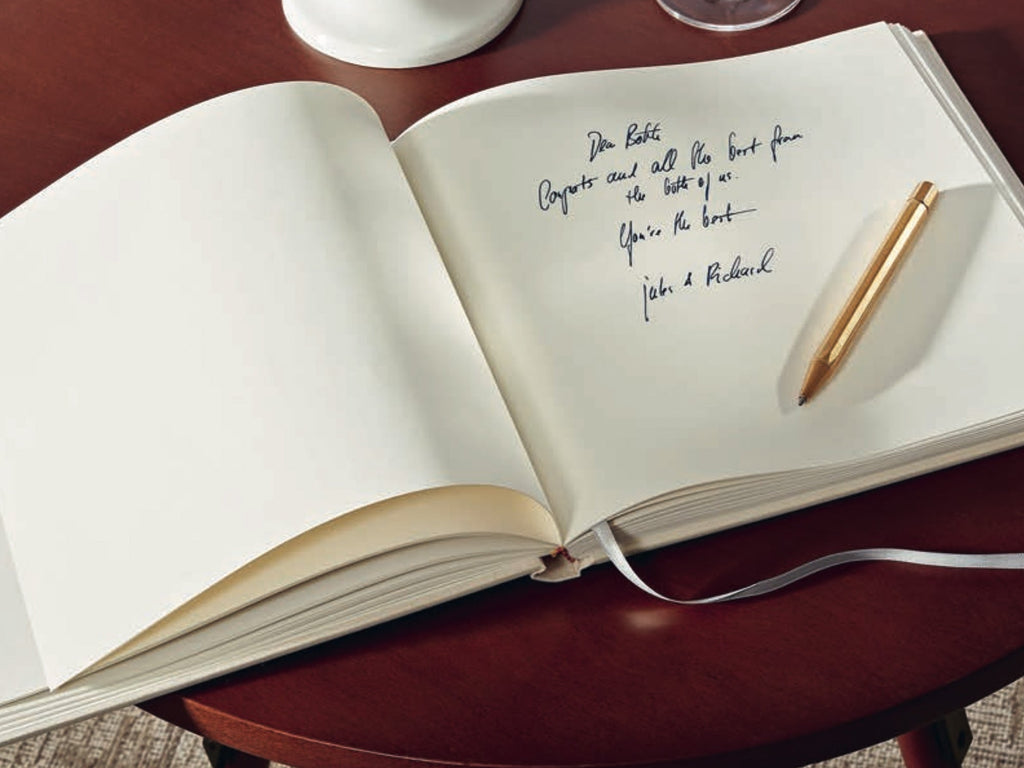 Dear
Congrats and all the best from
the both of us.
You're the best
Jules & Richard